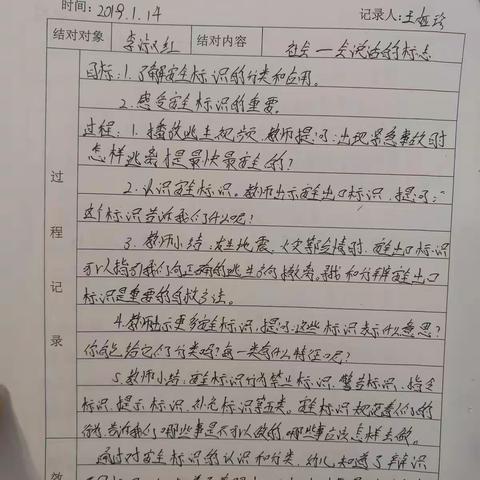 时间：2019.1.14 记录人：王
结对对象 李 红 结对内容 社会—会说话的标志
目标：1.了解安全标识的分类和应用。
2.感受安全标识的重要。
过程：1.播放逃生视频，教师提问：出现紧急事故时
怎样逃离才是最快最安全的？
2.认识安全标识。教师出示安全出口标识，提问：“
这个标识告诉我们什么呢？
3.教师小结：发生地震、火灾等险情时，安全出口标识
可以指引我们向正确的逃生方向撤离。寻找和分辨安全出口
标识是重要的自救方法。
4.教师出示更多安全标识，提问：这些标识表示什么意思？
你能给它们分类吗？每一类有什么特征呢？
5.教师小结：安全标识分为禁止标识、警告标识、指令
标识、提示标识、补充标识等五类。安全标识规范着人们的
行为，告诉我们哪些事是不可以做的，哪些事应该怎样去做。
过程记录
通过对安全标识的认识和分类，幼儿知道了辩识
效